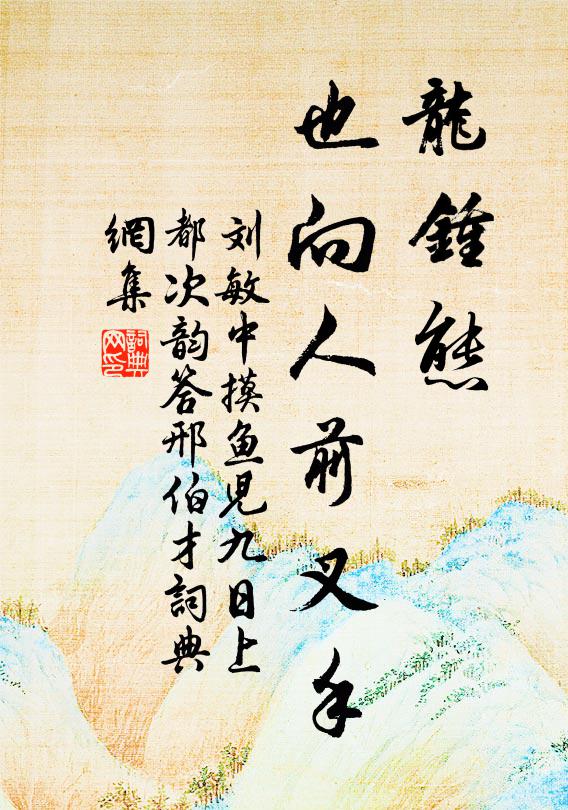 龍鍾態
也向人前叉手
刘敏中摸鱼児九日上
都次韵答邢伯才詞典
網集
詞典
网印